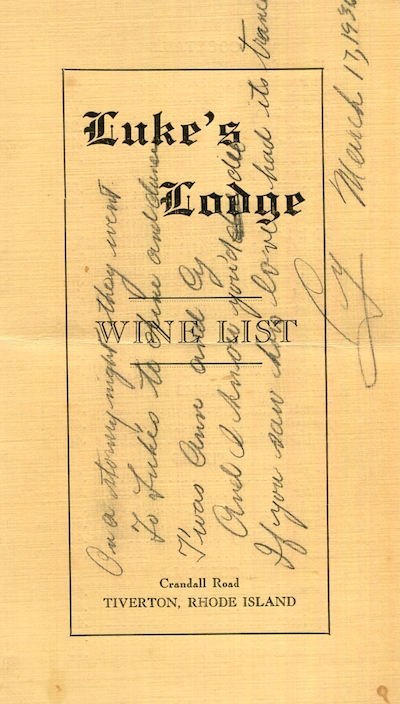 Luke's
Lodge
WINE LIST
Crandall Road
TIVERTON, RHODE ISLAND
On a stormy night they went
To Luke's to dine and
T'was Ann and Cy
And I know you'd die
If you saw how love had its trance
Cy
March 17, 1936